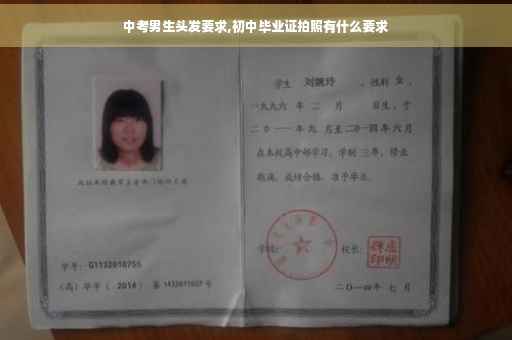 中考男生头发要求,初中毕业证拍照有什么要求
学生 刘婉玲 ,性别 女 ,
一九九六 年 二 月 日生,于
二0一一年九 月至二0一四年六月
在本校高中部学习,学制 三年,修业
期满,成绩合格,准予毕业。
学校: 校长:
学号: G1132010755
(高)毕字( 2014 )第 1432011027 号
二〇一四年 七 月